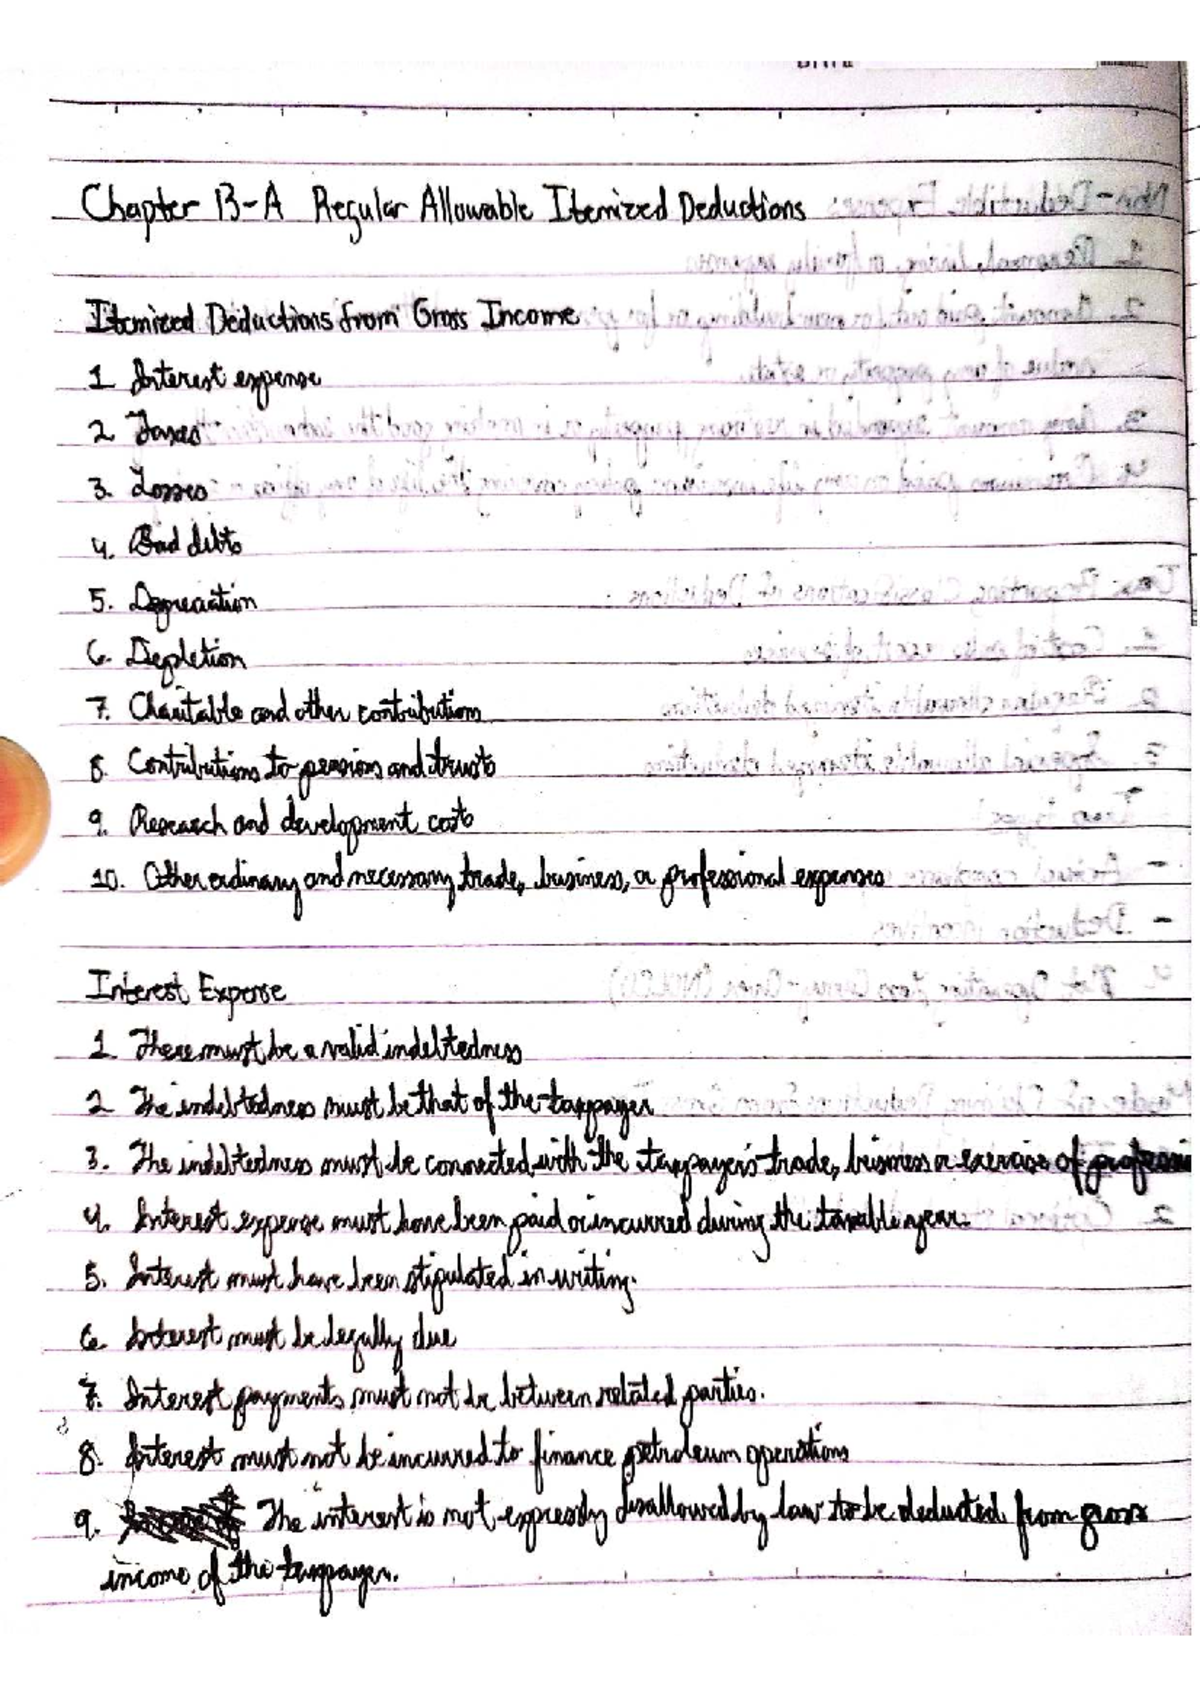 Chapter 13-A Regular Allowable Itemized Deductions
Itemized Deductions from Gross Income
1 Interest expense
2 Taxes
3. Losses
4. Bad debts
5. Depreciation
6. Depletion
7. Charitable and other contributions
8. Contributions to pensions and trusts
9. Research and development costs
10. Other ordinary and necessary trade, business, or professional expenses
Interest Expense
1 There must be a valid indebtedness
2 The indebtedness must be that of the taxpayer
3. The indebtedness must be connected with the taxpayer's trade, business or exercise of professi
4. Interest expense must have been paid or incurred during the taxable year.
5. Interest must have been stipulated in writing.
6. Interest must be legally due
7. Interest payments must not be between related parties.
8. Interest must not be incurred to finance petroleum operations
9. The interest is not expressly disallowed by law to be deducted from gross
income of the taxpayer.